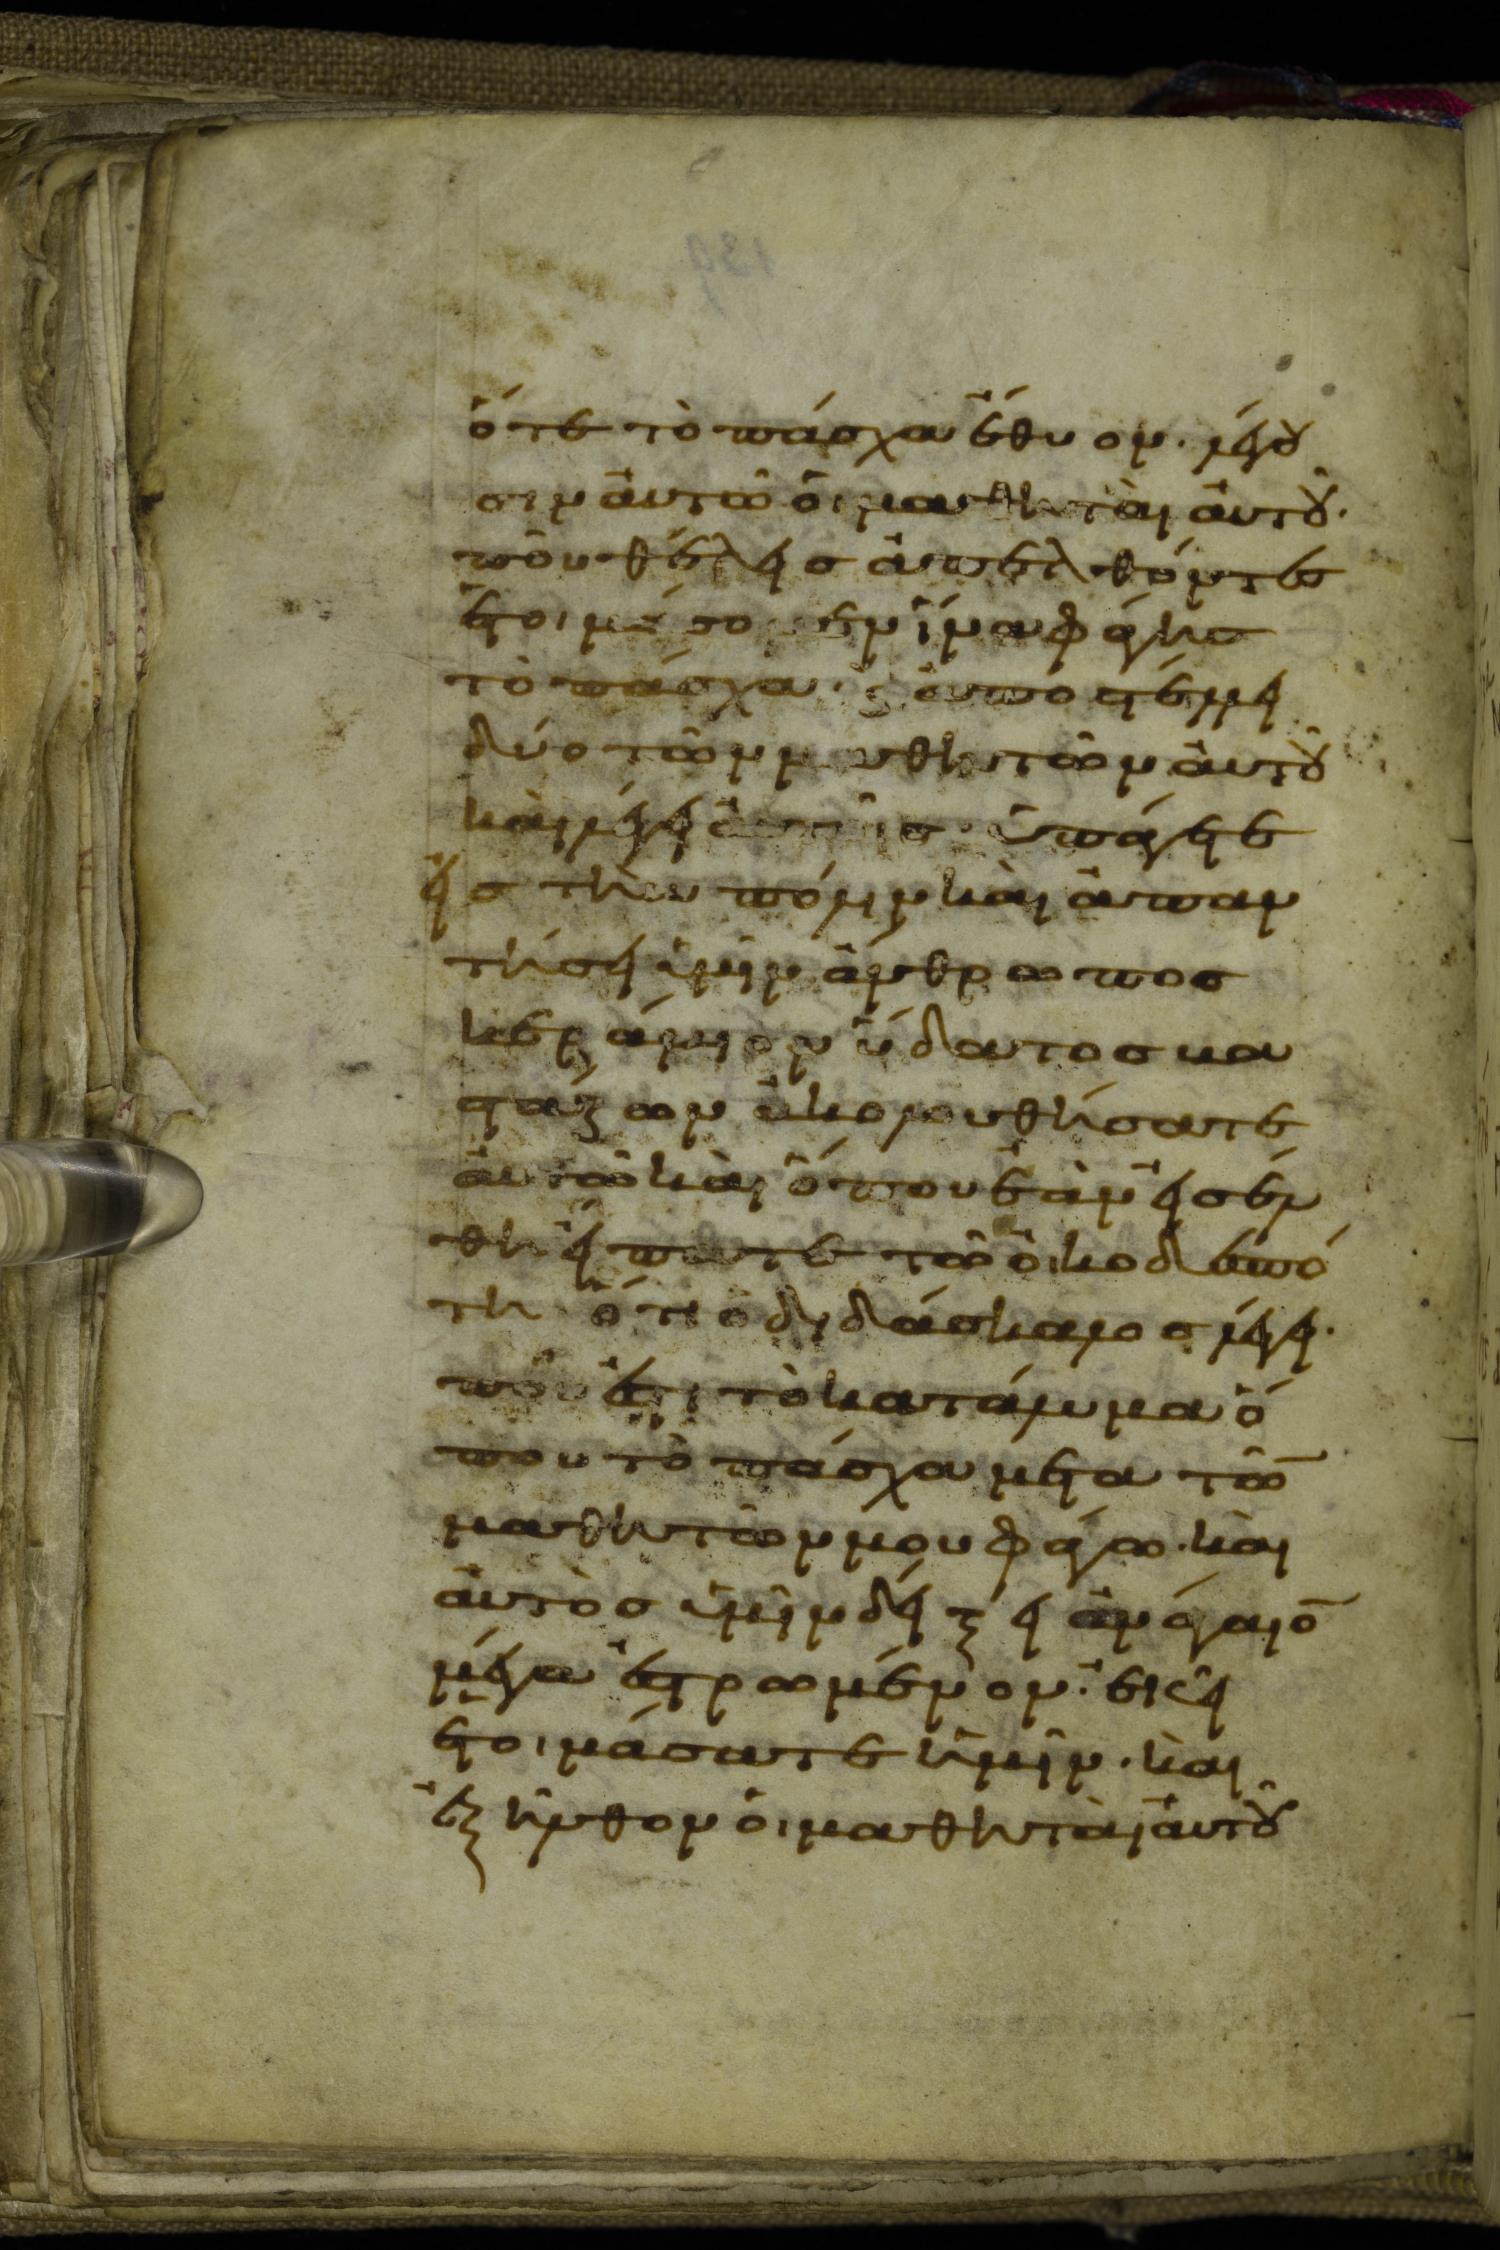 ὅτε τὸ πάσχα ἔθυον· λέγου
σιν αὐτῶ οἱ μαθηταὶ αὐτοῦ·
ποῦ θέλεις ἀπελθόντες
ἑτοιμάσομεν ἵνα φάγης
τὸ πάσχα· καὶ ἀποστέλλει
δύο τῶν μαθητῶν αὐτοῦ
καὶ λέγει αὐτοῖς· ὑπάγετε
εἰς τὴν πόλιν καὶ ἀπαν
τήσει ὑμῖν ἄνθρωπος
κεράμιον ὕδατος βα
στάζων ἀκολουθήσατε
αὐτῶ καὶ ὅπου ἐὰν εἰσέλ
θη εἴπατε τῶ οἰκοδεσπό
τη ὅτι ὁ διδάσκαλος λέγει·
ποῦ ἐστι τὸ κατάλυμα ὅ
που τὸ πάσχα μετὰ τῶ̅
μαθητῶν μου φάγω· καὶ
αὐτὸς ὑμῖν δείξει ἀνάγαιο̅
μέγα ἐστρωμένον· ἐκεῖ
ἑτοιμάσατε ἡμῖν· καὶ
ἐξῆλθον οἱ μαθηταὶ αὐτοῦ